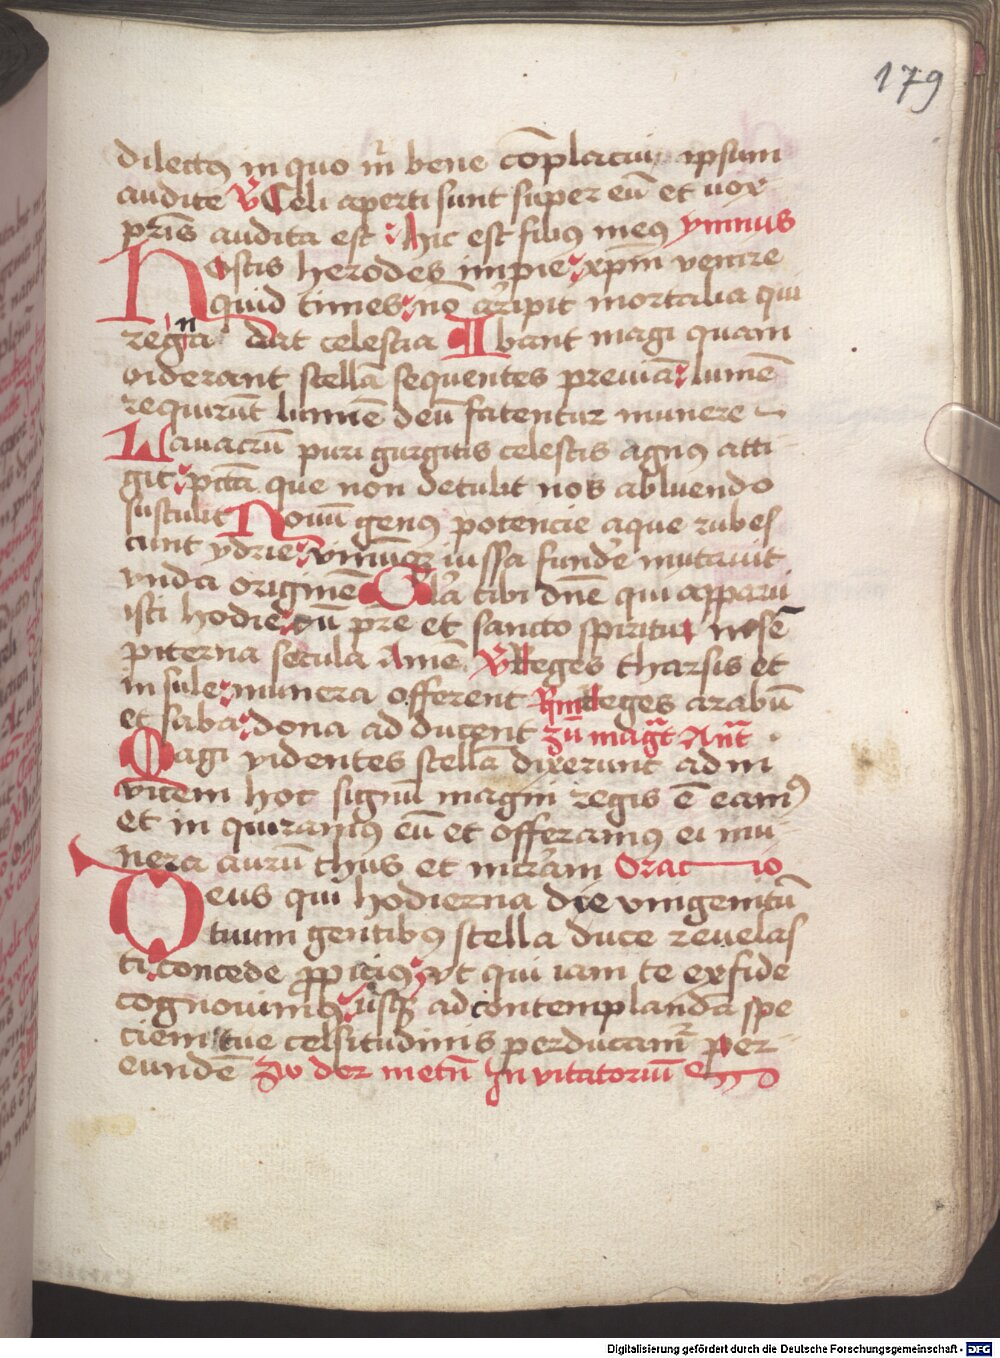 179
dilectꝰ in quo m̄ bene cōplacui ipsum
audite ℣ Celi aperti sunt super eū et uox
pr̄is audita est hic est filiꝰ meꝰ ymnus
Hostis herodes impie xp̄m venire
quid times nō eripit mortalia qui
regna dat celestia Ibant magi quam
viderant stellā sequentes preuiā lumē
requirūt lumīe deū fatentur munere
Lauacrū puri gurgitis celestis agnꝰ atti
git pctā que non detulit nos abluendo
sustulit Nouū genꝰ potencie aque rubes
cunt ydrie vinūqꝫ iussa fundere mutauit
vnda originē Gl̄a tibi dn̄e qui apparu
isti hodie cū pr̄e et sancto spiritu in sē
piterna secula Amē ℣ Reges tharsis et
insule munera offerent Reges arabū
et saba dona ad ducent zū mag̅t An̄t
Magi videntes stellā dixerunt ad in
vicem hoc signū magni regis ē eamꝰ
et in quiramꝰ eū et offeramꝰ ei mu
nera aurū thus et mirram Oracio
Deus qui hodierna die vnigenitū
tuum gentibꝰ stella duce reuelas
ti concede ꝓpiciꝰ vt qui iam te ex fide
cognouimꝰ usqꝫ ad contemplandā spe
ciem tue celsitudinis perducamr̄ per
eundē zu der metī̄ In vitatoriū
Digitalisierung gefördert durch die Deutsche Forschungsgemeinschaft - DFG